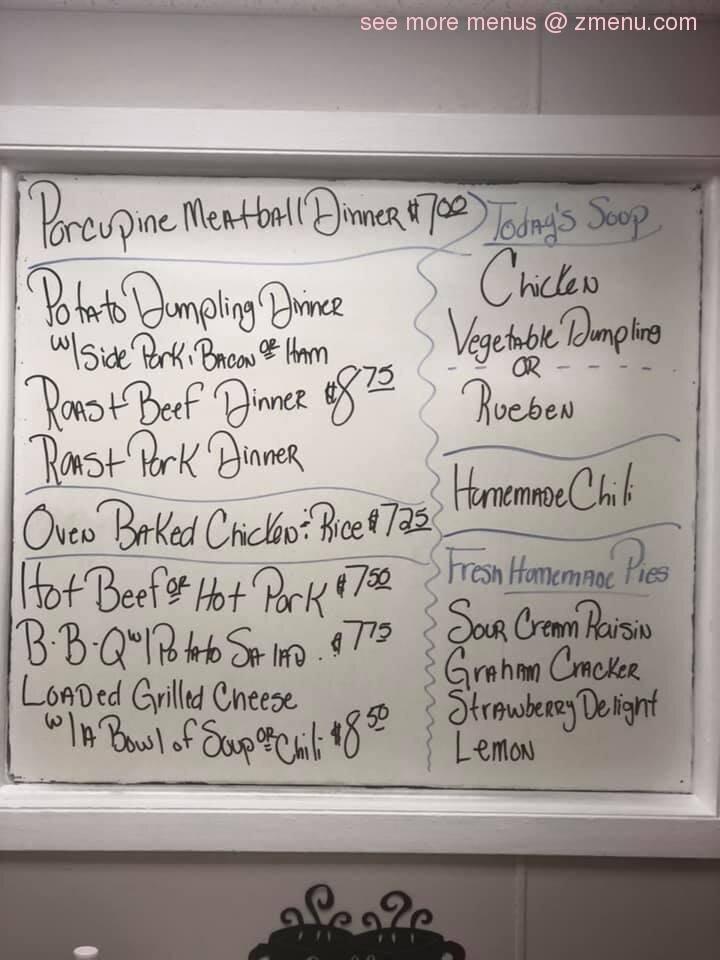 see more menus @ zmenu.com
Porcupine Meatball Dinner $7.00
Potato Dumpling Dinner
w/ Side Pork, Bacon or Ham
Roast Beef Dinner $8.75
Roast Pork Dinner
Oven Baked Chicken & Rice $7.25
Hot Beef or Hot Pork $7.50
B-B-Q w/ Potato Salad. $7.75
Loaded Grilled Cheese
w/ A Bowl of Soup or Chili $8.50
Today's Soup
Chicken
Vegetable Dumpling
OR
Rueben
Homemade Chili
Fresh Homemade Pies
Sour Cream Raisin
Graham Cracker
Strawberry Delight
Lemon